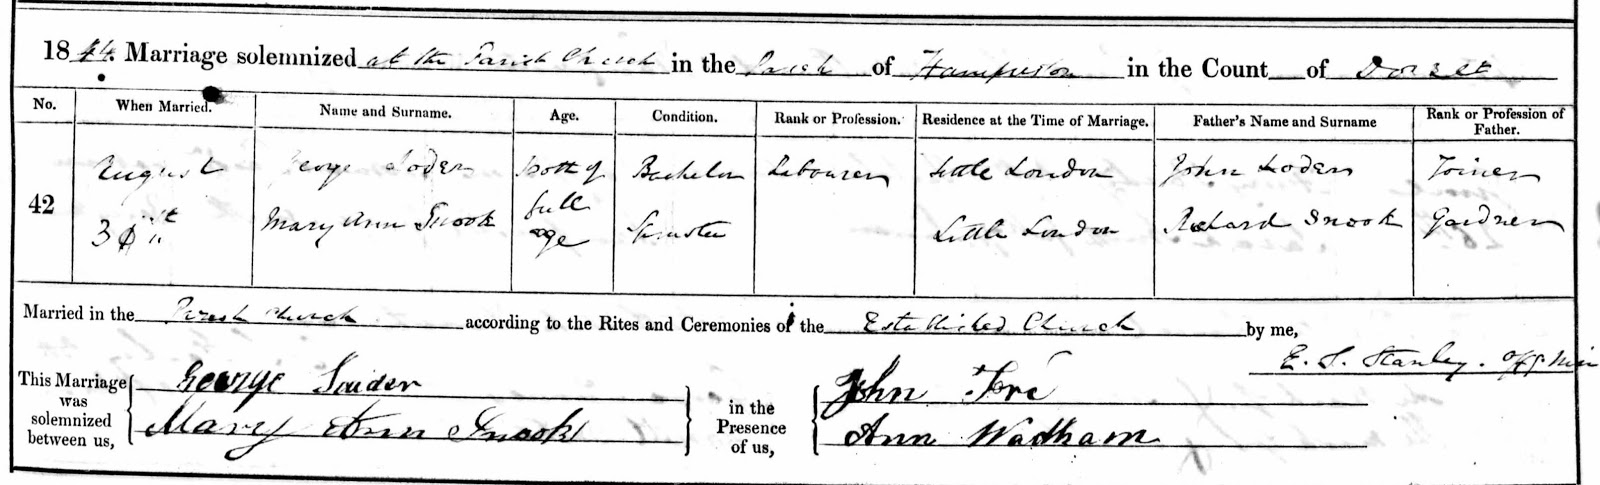 1844. Marriage solemnized at the Parish Church in the Parish of Hampreston in the Count of Dorset
No. When Married. Name and Surname. Age. Condition. Rank or Profession. Residence at the Time of Marriage. Father's Name and Surname Rank or Profession of Father.
42 August George Loders both of Bachelor Labourer Little London John Loders Joiner
full
3 Mary Ann Snook age Spinster Little London Richard Snook Gardner
Married in the Parish Church according to the Rites and Ceremonies of the Established Church by me,
E. S. Stanley. Off Min
This Marriage was solemnized between us, George Mary Ann Snook in the Presence of us, John Ann Wadham